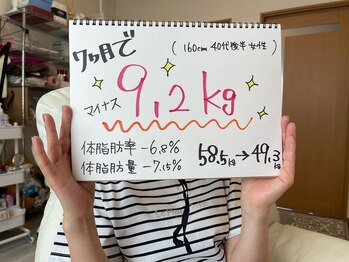 7ヶ月で
(160cm 40代後半女性)
マイナス 9.2kg
体脂肪率 -6.8%
体脂肪量 -7.15%
58.5kg→49.3kg